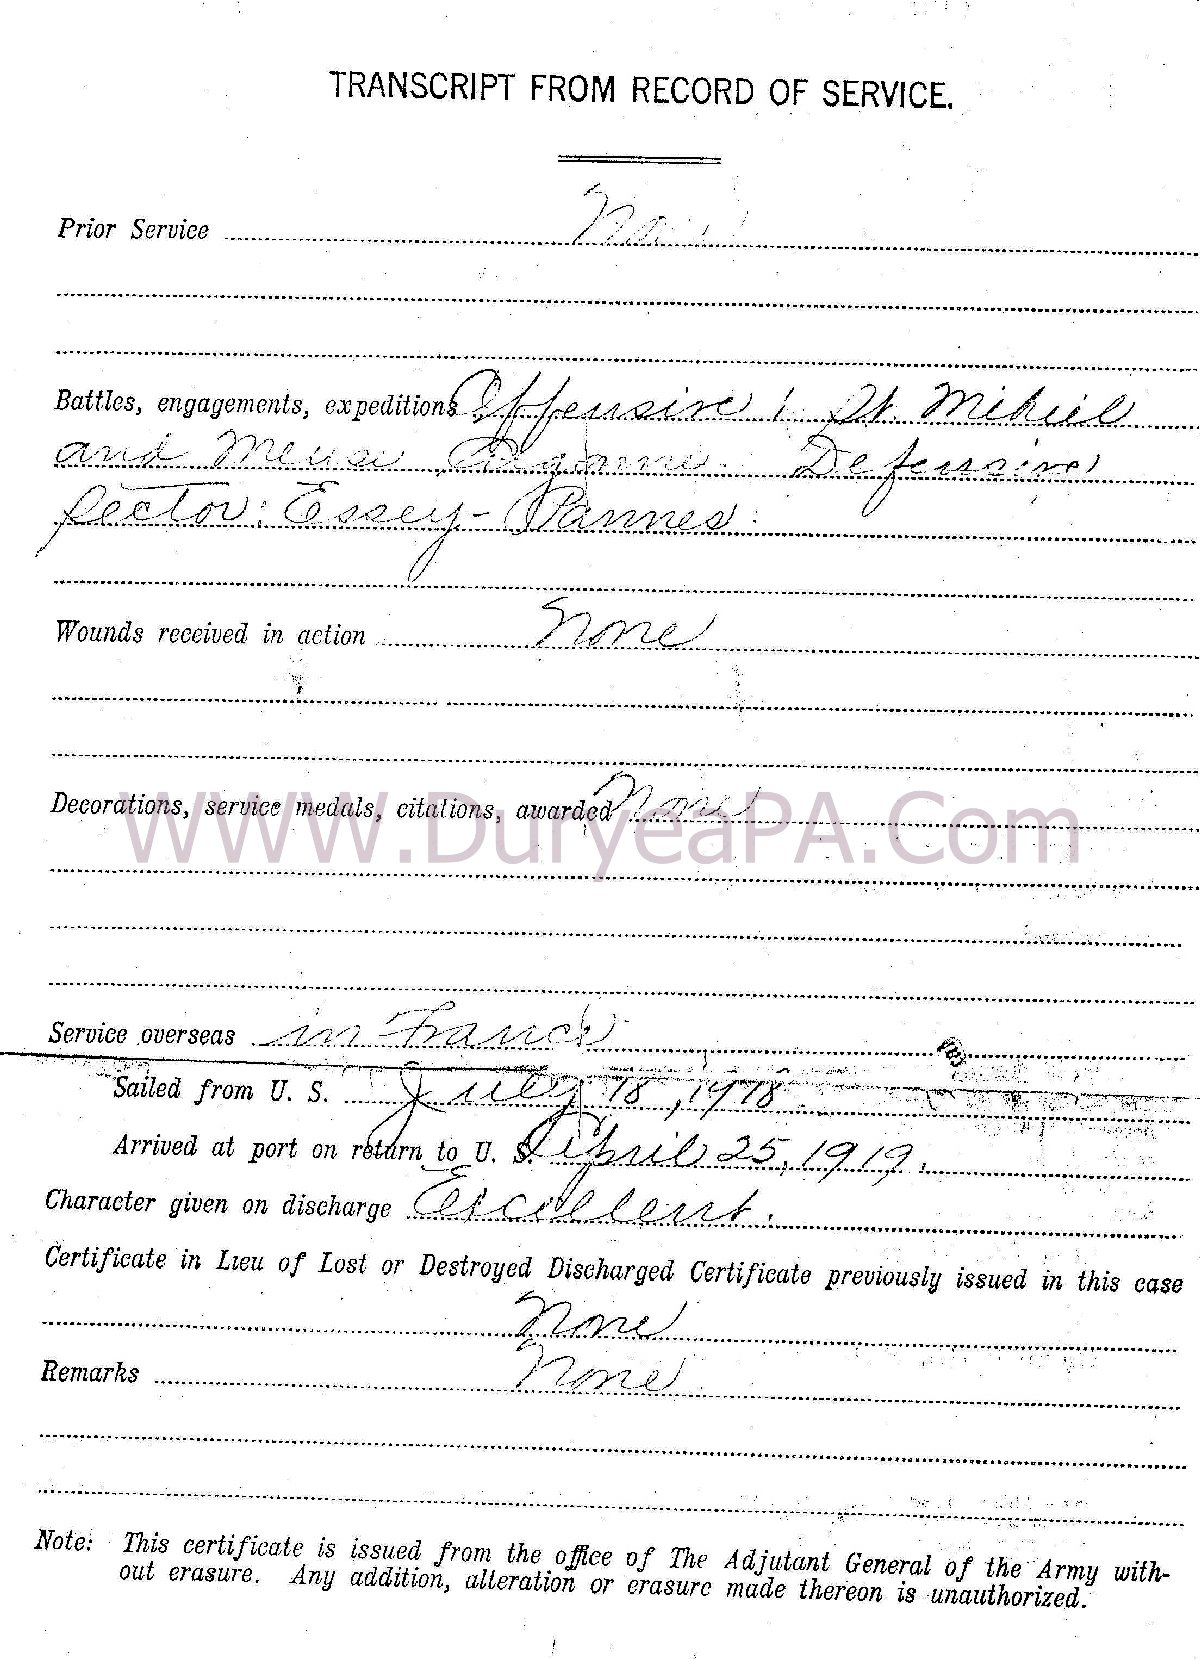 TRANSCRIPT FROM RECORD OF SERVICE.
Prior Service None
Battles, engagements, expeditions Offensive: St. Mihiel
and Meuse Argonne. Defensive
sector: Essey-Pannes.
Wounds received in action None
Decorations, service medals, citations, awarded None
WWW.DuryeaPA.Com
Service overseas in France
Sailed from U. S. July 18, 1918
Arrived at port on return to U. S. April 25, 1919.
Character given on discharge Excellent.
Certificate in Lieu of Lost or Destroyed Discharged Certificate previously issued in this case
None
Remarks None
Note: This certificate is issued from the office of The Adjutant General of the Army with-
out erasure. Any addition, alteration or erasure made thereon is unauthorized.